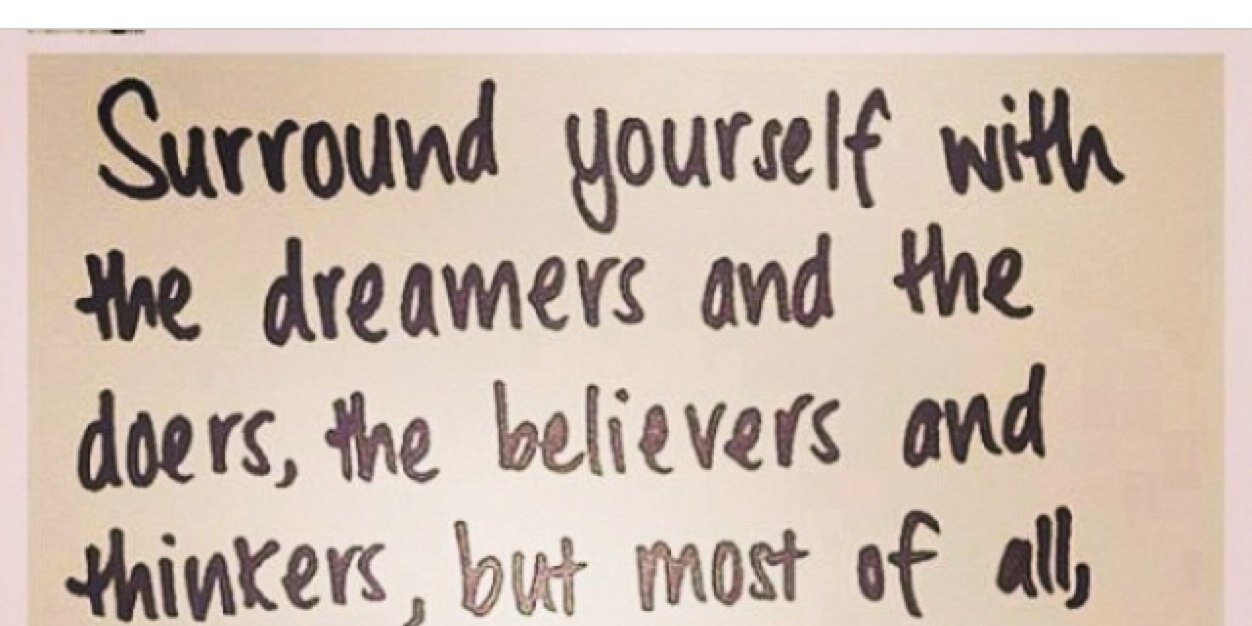 Surround yourself with
the dreamers and the
doers, the believers and
thinkers, but most of all,